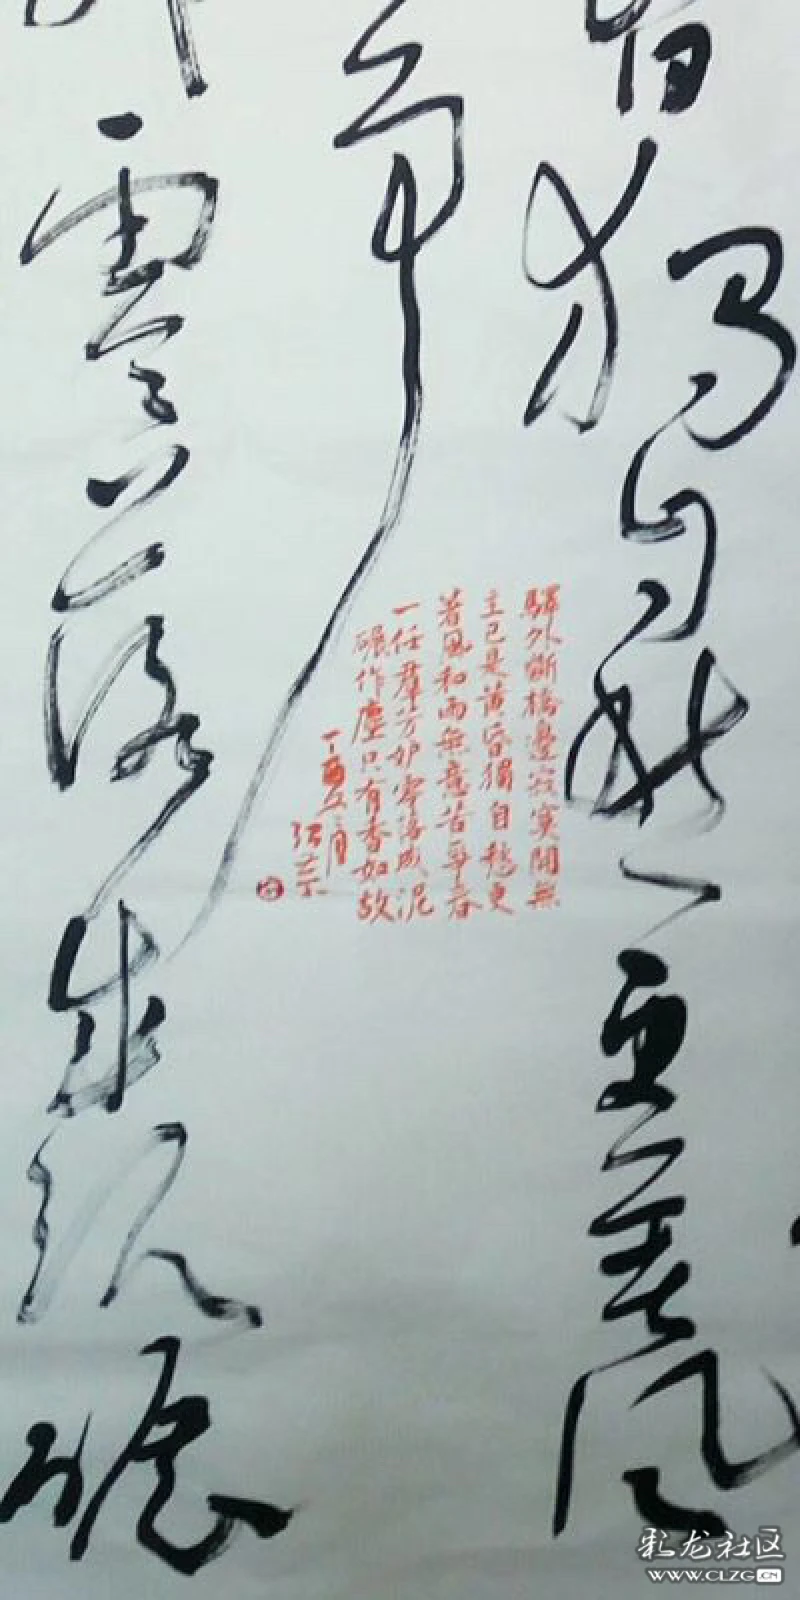 昏獨自愁更著風
爭
零落成泥碾
驛外斷橋邊寂寞開無
主已是黃昏獨自愁更
著風和雨無意苦爭春
一任群芳妒零落成泥
碾作塵只有香如故
丁酉
彩龙社区
WWW.CLZG.CN